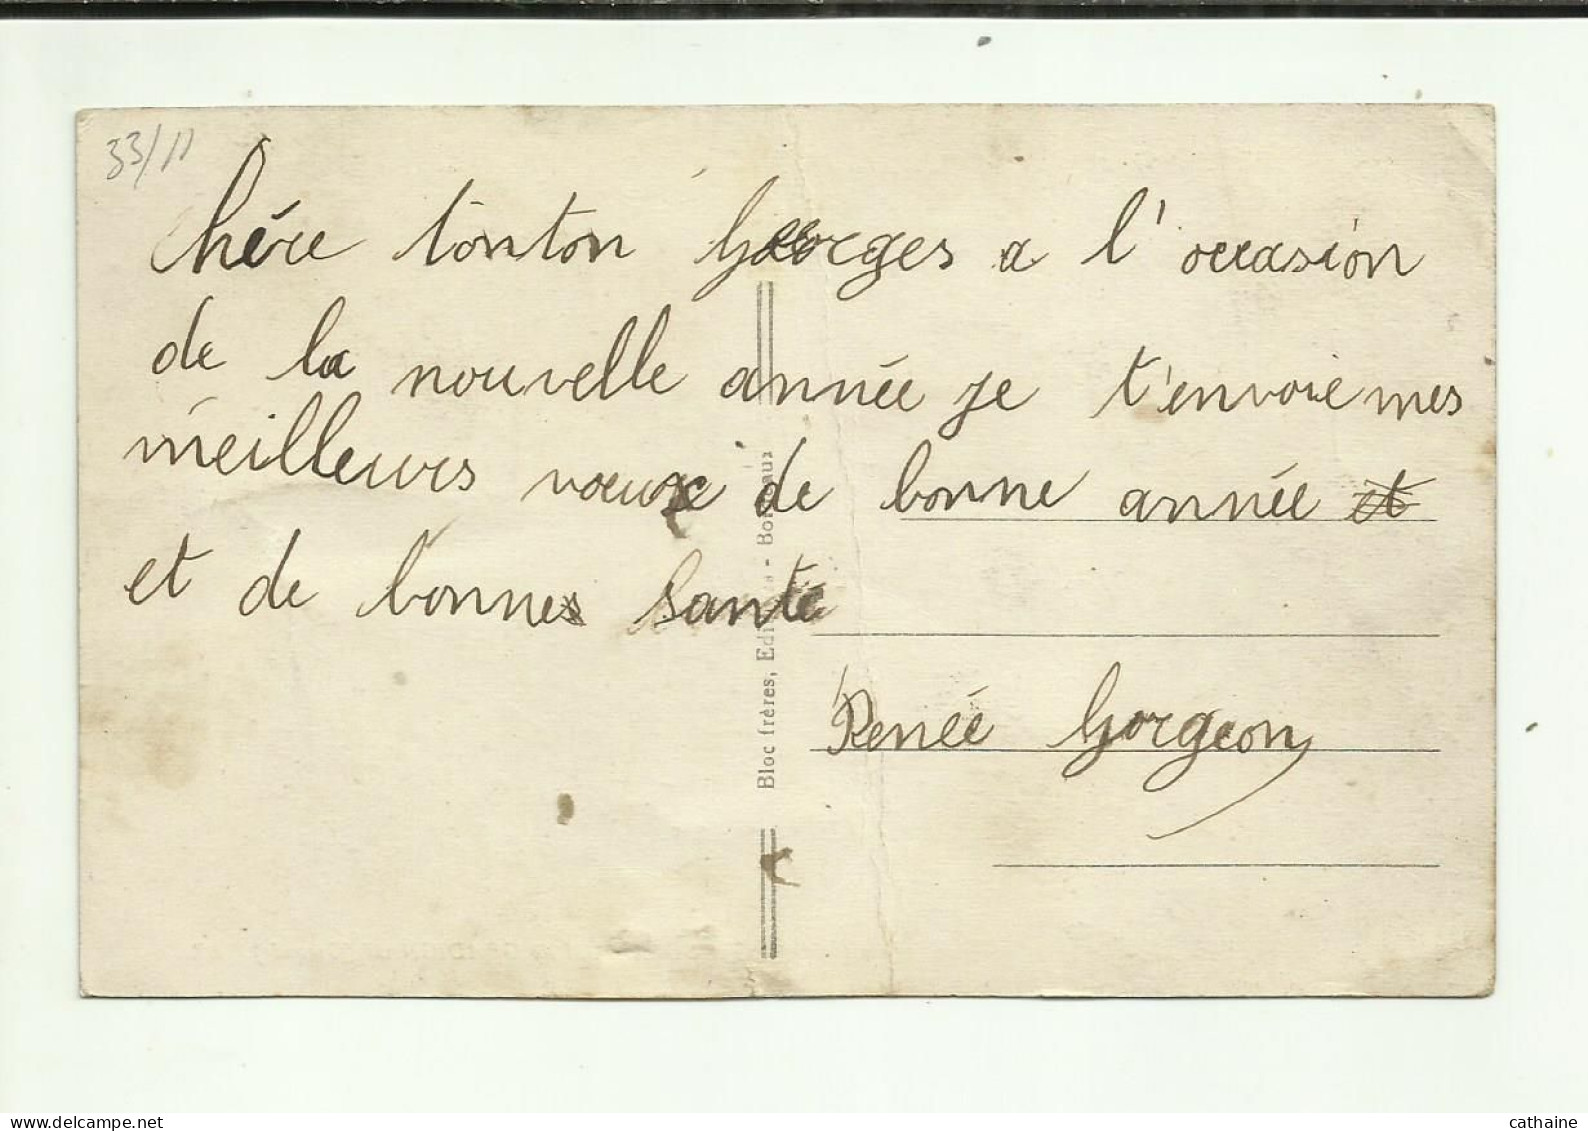 33/11
Chére tonton Georges a l'occasion
de la nouvelle année je t'envoie mes
meilleurs voeux de bonne année et
et de bonnes santé
Renée Gorgeon
Bloc frères, Edit - Bordeaux
website: www.delcampe.net
cathaine